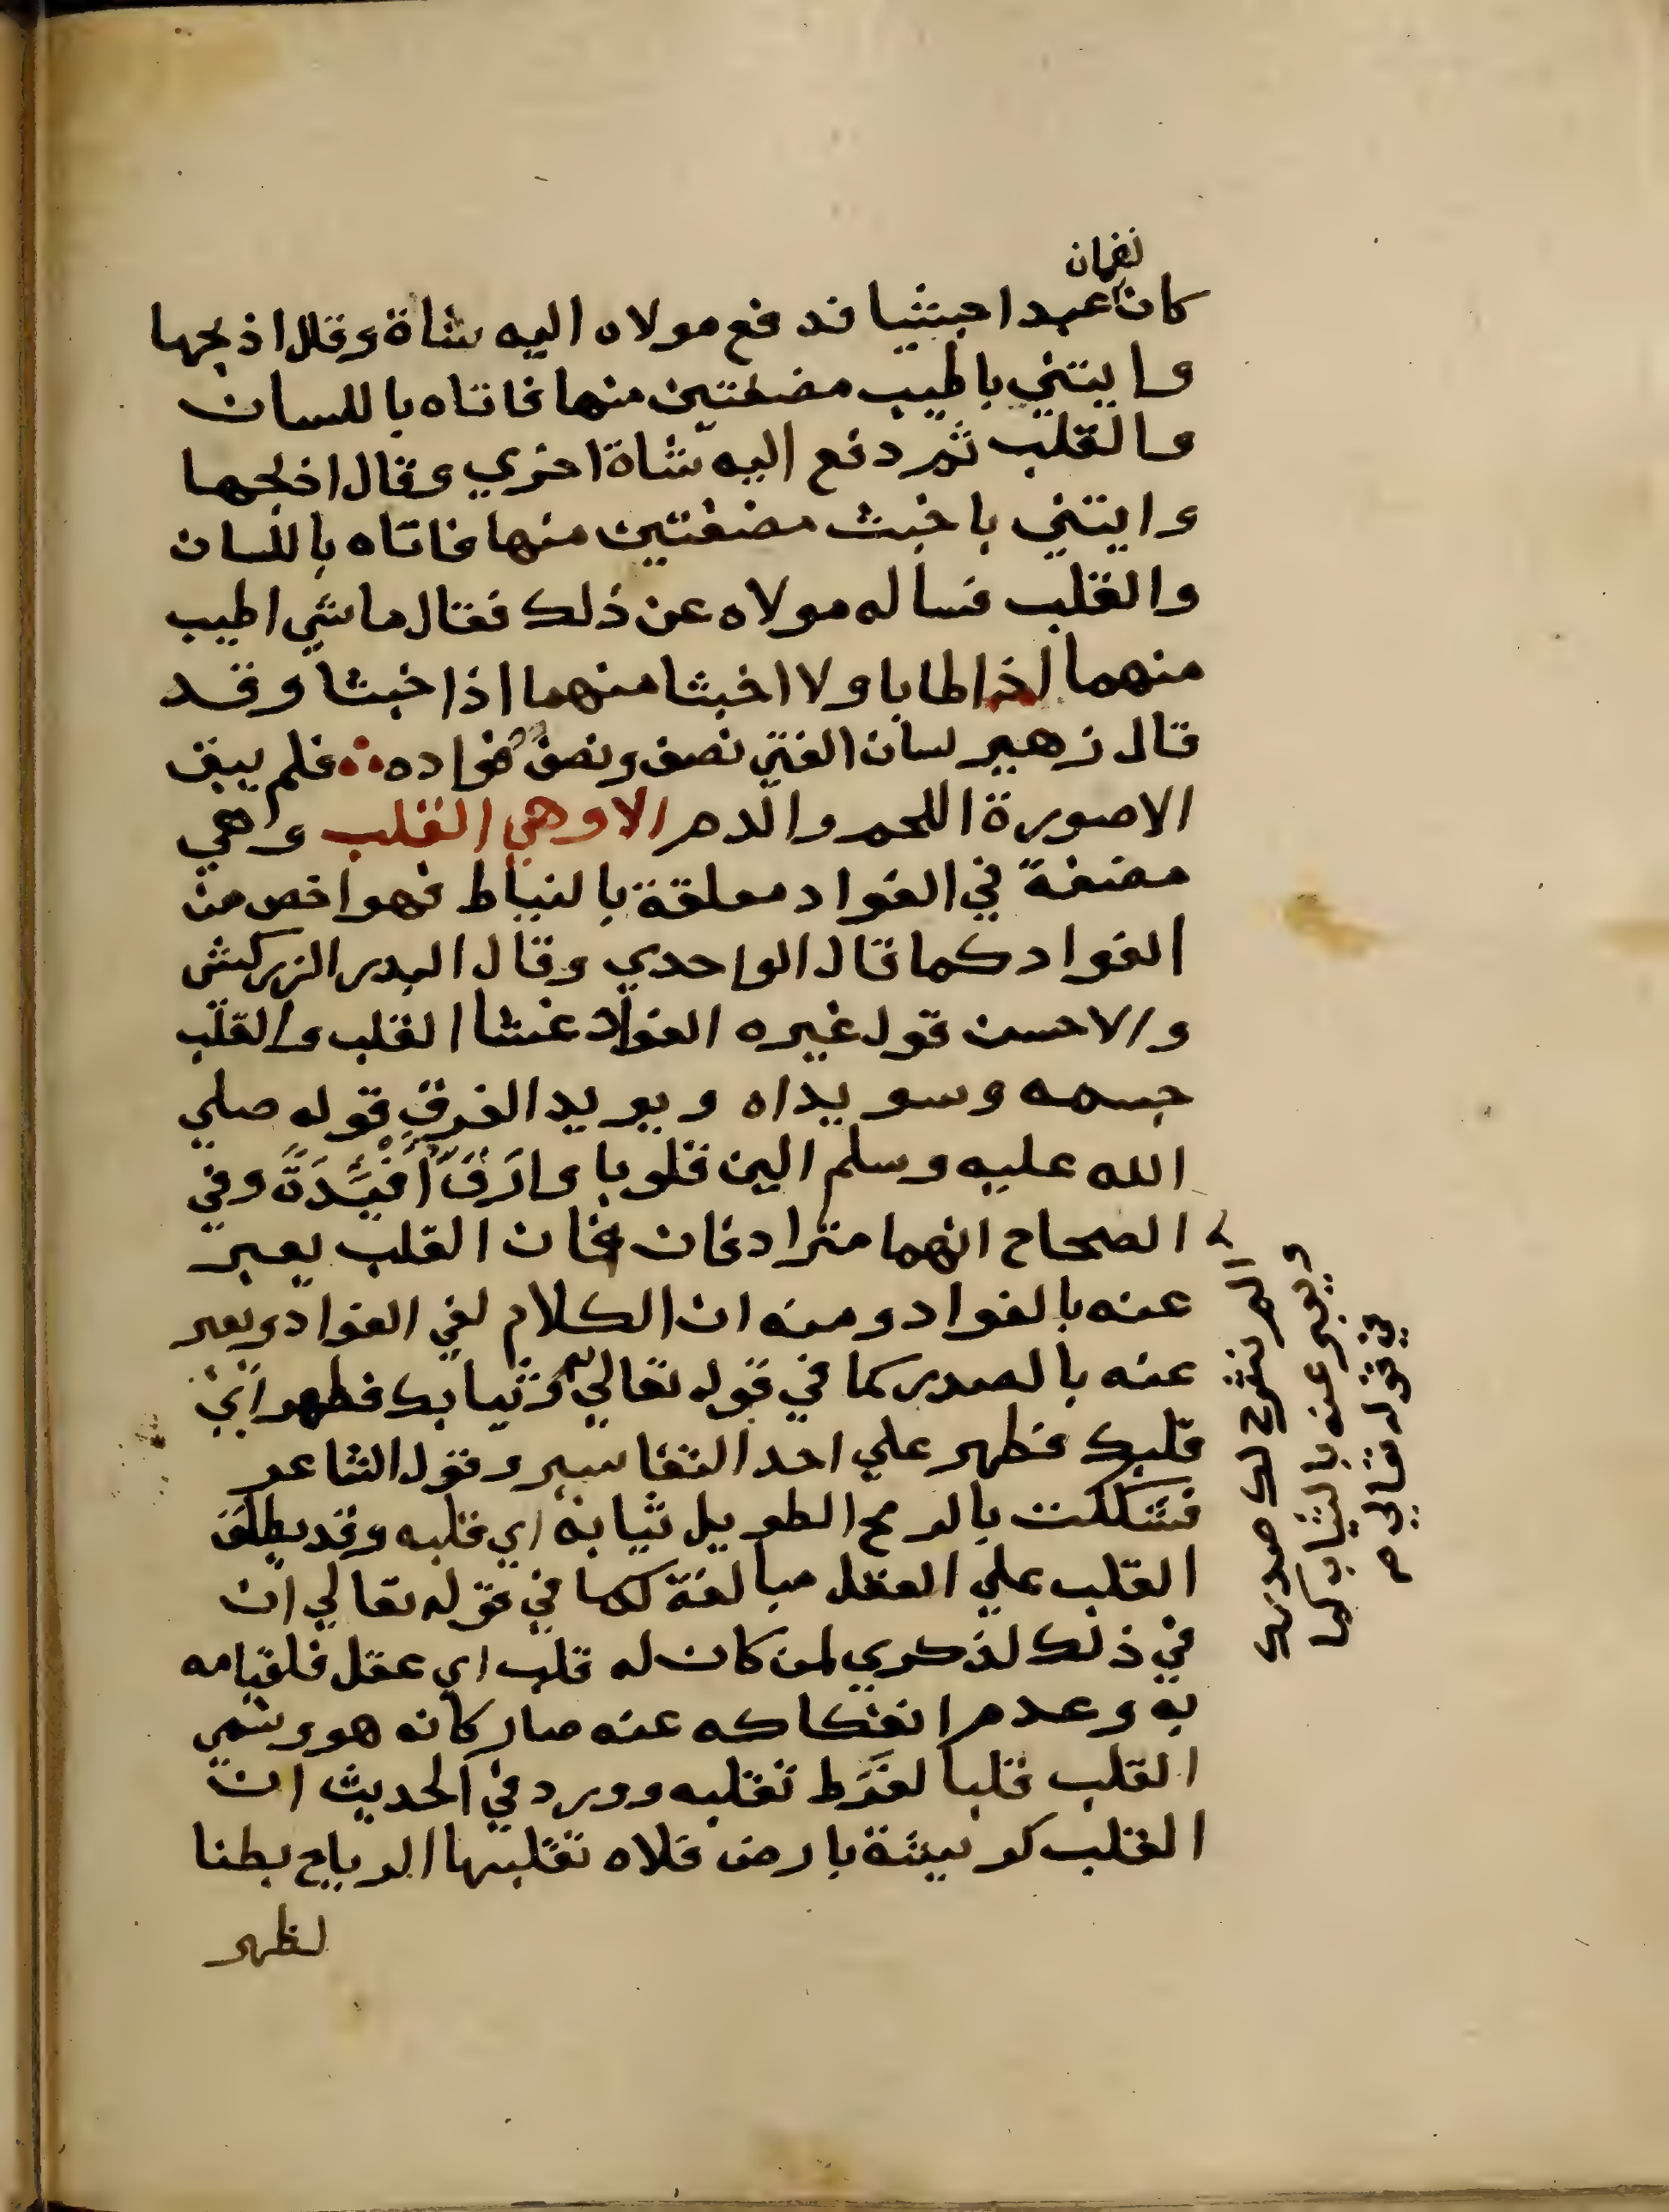 لقمان
كان عبدا حبشيا فدفع مولاه اليه شاة وقال اذبحها
وايتني باطيب مضغتين منها فاتاه باللسان
والقلب ثم دفع اليه شاة اخري وقال اذبحها
وايتني باخبث مضغتين منها فاتاه باللسان
والقلب فساله مولاه عن ذلك فقال ما شي اطيب
منهما اذا طابا ولا اخبثا منهما اذا خبثا وقد
قال زهير لسان الفتي نصف ونصف فواده فلم يبق
الا صورة اللحم والدم الا وهي القلب وهي
مضغة في الفواد معلقة بالنياط فهو اخص من
الفواد كما قال الواحدي وقال البدر الزركشي
والاحسن قول غيره الفواد غشا القلب والقلب
جسمه وسويداه ويويد الفرق قوله صلي
الله عليه وسلم الين قلوبا وارق افيدة وفي
الصحاح انهما مترادفان فان القلب يعبر
عنه بالفواد ومنه ان الكلام لفي الفواد ويعبر
عنه بالصدر كما في قوله تعالي وثيابك فطهر اي
قلبك فطهر علي احد التفاسير وقول الشاعر
فشككت بالرمح الطويل ثيابه اي قلبه وقد يطلق
القلب علي العقل مبالغة كما في قوله تعالي ان
في ذلك لذكري لمن كان له قلب اي عقل فلقيامه
به وعدم انفكاكه عنه صار كانه هو وسمي
القلب قلبا لفرط تقلبه وورد في الحديث ان
القلب كريشة بارض فلاه تقلبها الرياح بطنا
لظهر
الم نشرح لك صدرك
ويعبر عنه بالثياب كما
في قوله تعالي